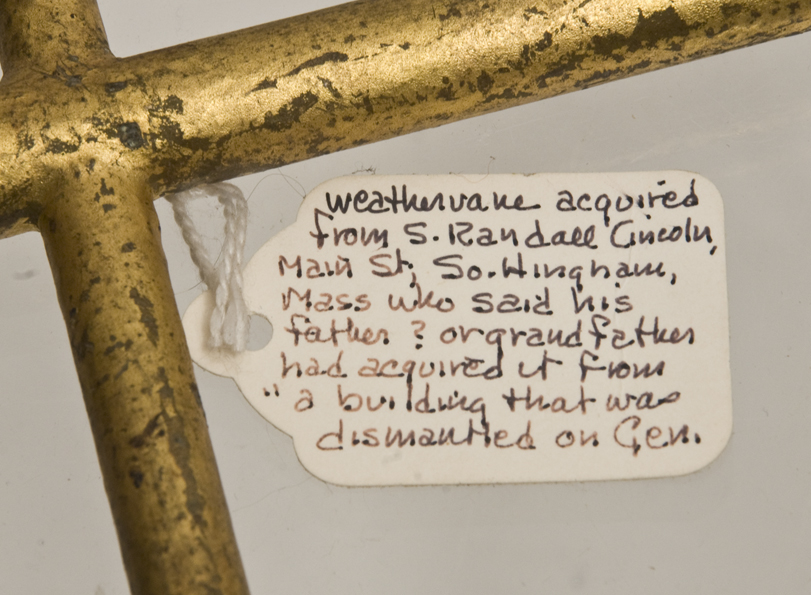 weathervane acquired
from S. Randall Lincoln,
Main St, So. Hingham,
Mass who said his
father ? or grandfather
had acquired it from
" a building that was
dismantled on Gen.